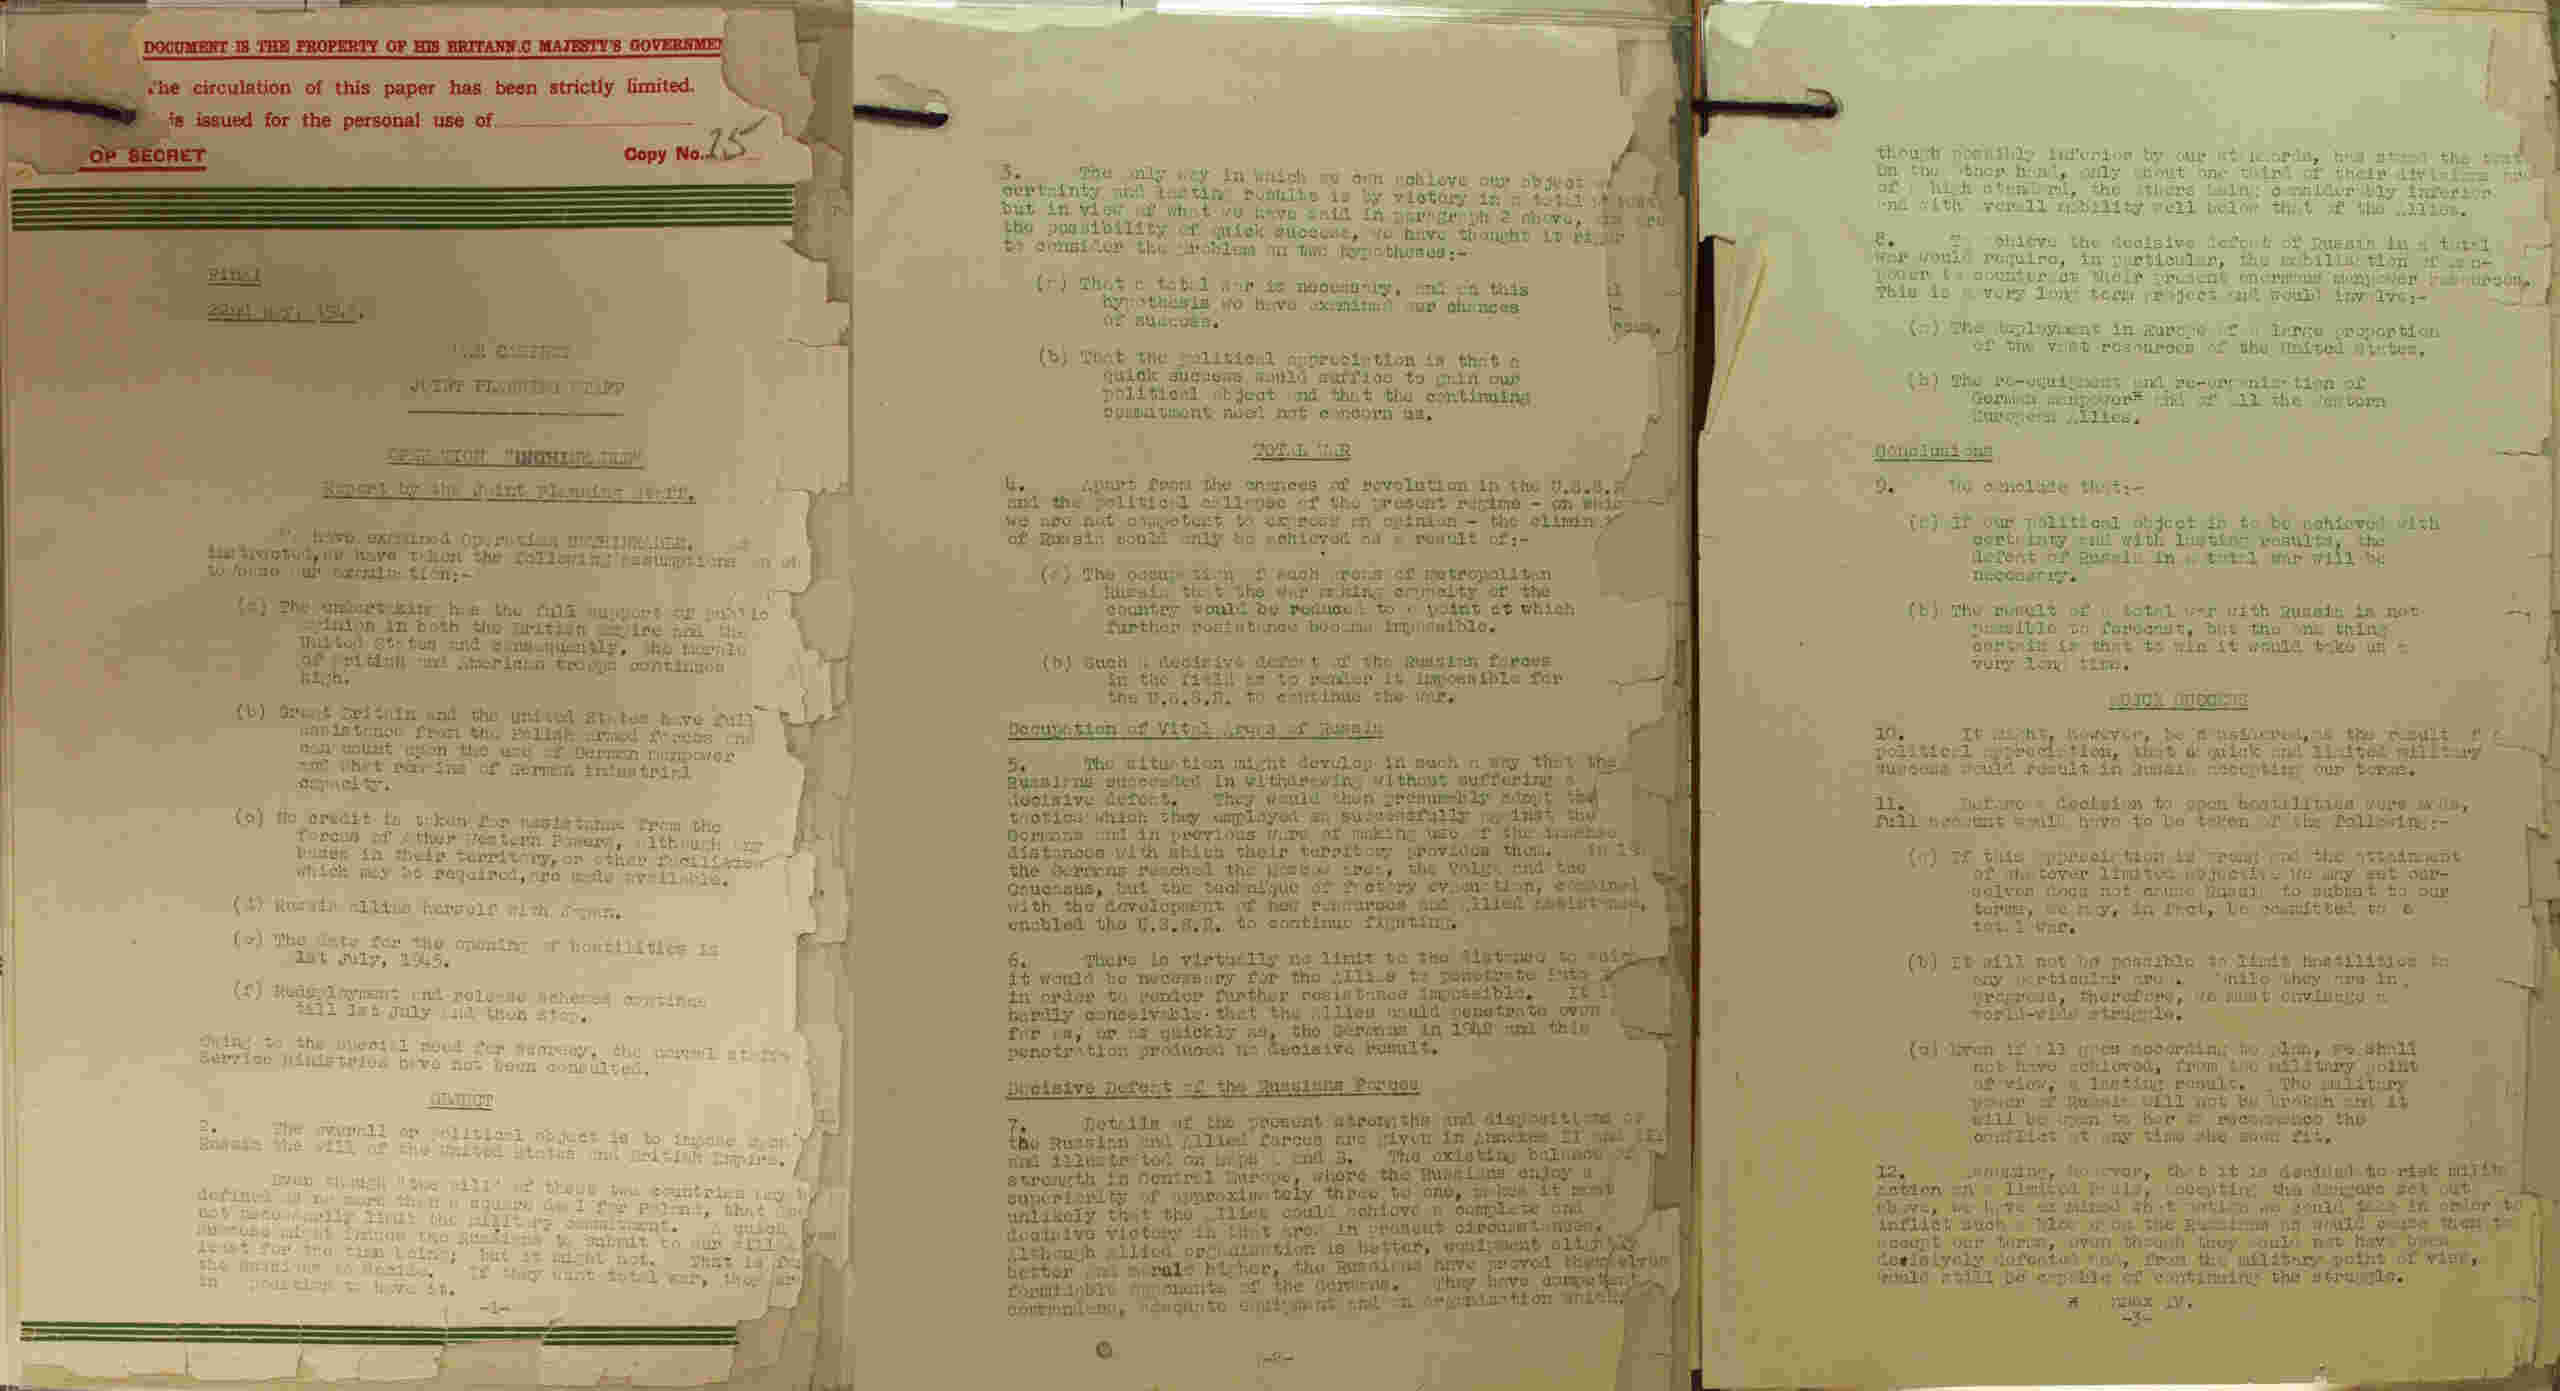 DOCUMENT IS THE PROPERTY OF HIS BRITANN.C MAJESTY'S GOVERNMEN
The circulation of this paper has been strictly limited.
is issued for the personal use of
OP SECRET
Copy No. 25
Final
22nd May, 1945.
WAR CABINET
JOINT PLANNING STAFF
OPERATION "UNTHINKABLE"
Report by the Joint Planning Staff.
We have examined Operation UNTHINKABLE. As
instructed, we have taken the following assumptions on
to base our examination:-
(a) The undertaking has the full support of public
opinion in both the British Empire and the
United States and consequently, the morale
of British and American troops continues
high.
(b) Great Britain and the United States have full
assistance from the Polish armed forces and
can count upon the use of German manpower
and what remains of German industrial
capacity.
(c) No credit is taken for assistance from the
forces of other Western Powers, although any
bases in their territory, or other facilities
which may be required, are made available.
(d) Russia allies herself with Japan.
(e) The date for the opening of hostilities is
1st July, 1945.
(f) Redeployment and release schemes continue
till 1st July and then stop.
Owing to the special need for secrecy, the normal staffs
Service Ministries have not been consulted.
OBJECT
2. The overall or political object is to impose upon
Russia the will of the United States and British Empire.
Even though "the will" of these two countries may be
defined as no more than a square deal for Poland, that does
not necessarily limit the military commitment. A quick
success might induce the Russians to submit to our will
least for the time being; but it might not. That is for
the Russians to decide. If they want total war, they are
in position to have it.
-1-
3. The only way in which we can achieve our object
certainty and lasting results is by victory in a total
but in view of what we have said in paragraph 2 above,
the possibility of quick success, we have thought it right
to consider the problem on two hypotheses:-
(a) That a total war is necessary, and on this
hypothesis we have examined our chances
of success.
(b) That the political appreciation is that a
quick success would suffice to gain our
political object and that the continuing
commitment need not concern us.
TOTAL WAR
4. Apart from the chances of revolution in the U.S.S.R
and the political collapse of the present regime - on which
we are not competent to express an opinion - the elimin
of Russia could only be achieved as a result of:-
(a) The occupation of such areas of metropolitan
Russia that the war making capacity of the
country would be reduced to a point at which
further resistance became impossible.
(b) Such a decisive defeat of the Russian forces
in the field as to render it impossible for
the U.S.S.R. to continue the war.
Occupation of Vital Areas of Russia
5. The situation might develop in such a way that the
Russians succeeded in withdrawing without suffering a
decisive defeat. They would then presumably adopt the
tactics which they employed so successfully against the
Germans and in previous wars of making use of the immense
distances with which their territory provides them. In 19
the Germans reached the Moscow area, the Volga and the
Caucasus, but the technique of factory evacuation, combined
with the development of new resources and Allied assistance,
enabled the U.S.S.R. to continue fighting.
6. There is virtually no limit to the distance to which
it would be necessary for the Allies to penetrate into
in order to render further resistance impossible. It is
hardly conceivable that the Allies could penetrate even
far as, or as quickly as, the Germans in 1942 and this
penetration produced no decisive result.
Decisive Defeat of the Russians Forces
7. Details of the present strengths and dispositions of
the Russian and Allied forces are given in Annexes II and III
and illustrated on Maps A and B. The existing balance of
strength in Central Europe, where the Russians enjoy a
superiority of approximately three to one, makes it most
unlikely that the Allies could achieve a complete and
decisive victory in that area in present circumstances.
Although Allied organisation is better, equipment slightly
better and morale higher, the Russians have proved themselves
formidable opponents of the Germans. They have competent
commanders, adequate equipment and an organisation which,
-2-
though possibly inferior by our standards, has stood the test
On the other hand, only about one third of their divisions are
of a high standard, the others being considerably inferior
and with overall mobility well below that of the Allies.
8. To achieve the decisive defeat of Russia in a total
war would require, in particular, the mobilisation of man-
power to counteract their present enormous manpower resources.
This is a very long term project and would involve:-
(a) The deployment in Europe of a large proportion
of the vast resources of the United States.
(b) The re-equipment and re-organisation of
German manpower* and of all the Western
European Allies.
Conclusions
9. We conclude that:-
(a) If our political object is to be achieved with
certainty and with lasting results, the
defeat of Russia in a total war will be
necessary.
(b) The result of a total war with Russia is not
possible to forecast, but the one thing
certain is that to win it would take us a
very long time.
QUICK SUCCESS
10. It might, however, be considered, as the result of a
political appreciation, that a quick and limited military
success would result in Russia accepting our terms.
11. Before a decision to open hostilities were made,
full account would have to be taken of the following:-
(a) If this appreciation is wrong and the attainment
of whatever limited objective we may set our-
selves does not cause Russia to submit to our
terms, we may, in fact, be committed to a
total war.
(b) It will not be possible to limit hostilities to
any particular area. While they are in
progress, therefore, we must envisage a
world-wide struggle.
(c) Even if all goes according to plan, we shall
not have achieved, from the military point
of view, a lasting result. The military
power of Russia will not be broken and it
will be open to her to recommence the
conflict at any time she sees fit.
12. Assuming, however, that it is decided to risk milit
action on a limited basis, accepting the dangers set out
above, we have examined what action we could take in order to
inflict such a blow upon the Russians as would cause them to
accept our terms, even though they would not have been
decisively defeated and, from the military point of view,
would still be capable of continuing the struggle.
* Annex IV.
-3-